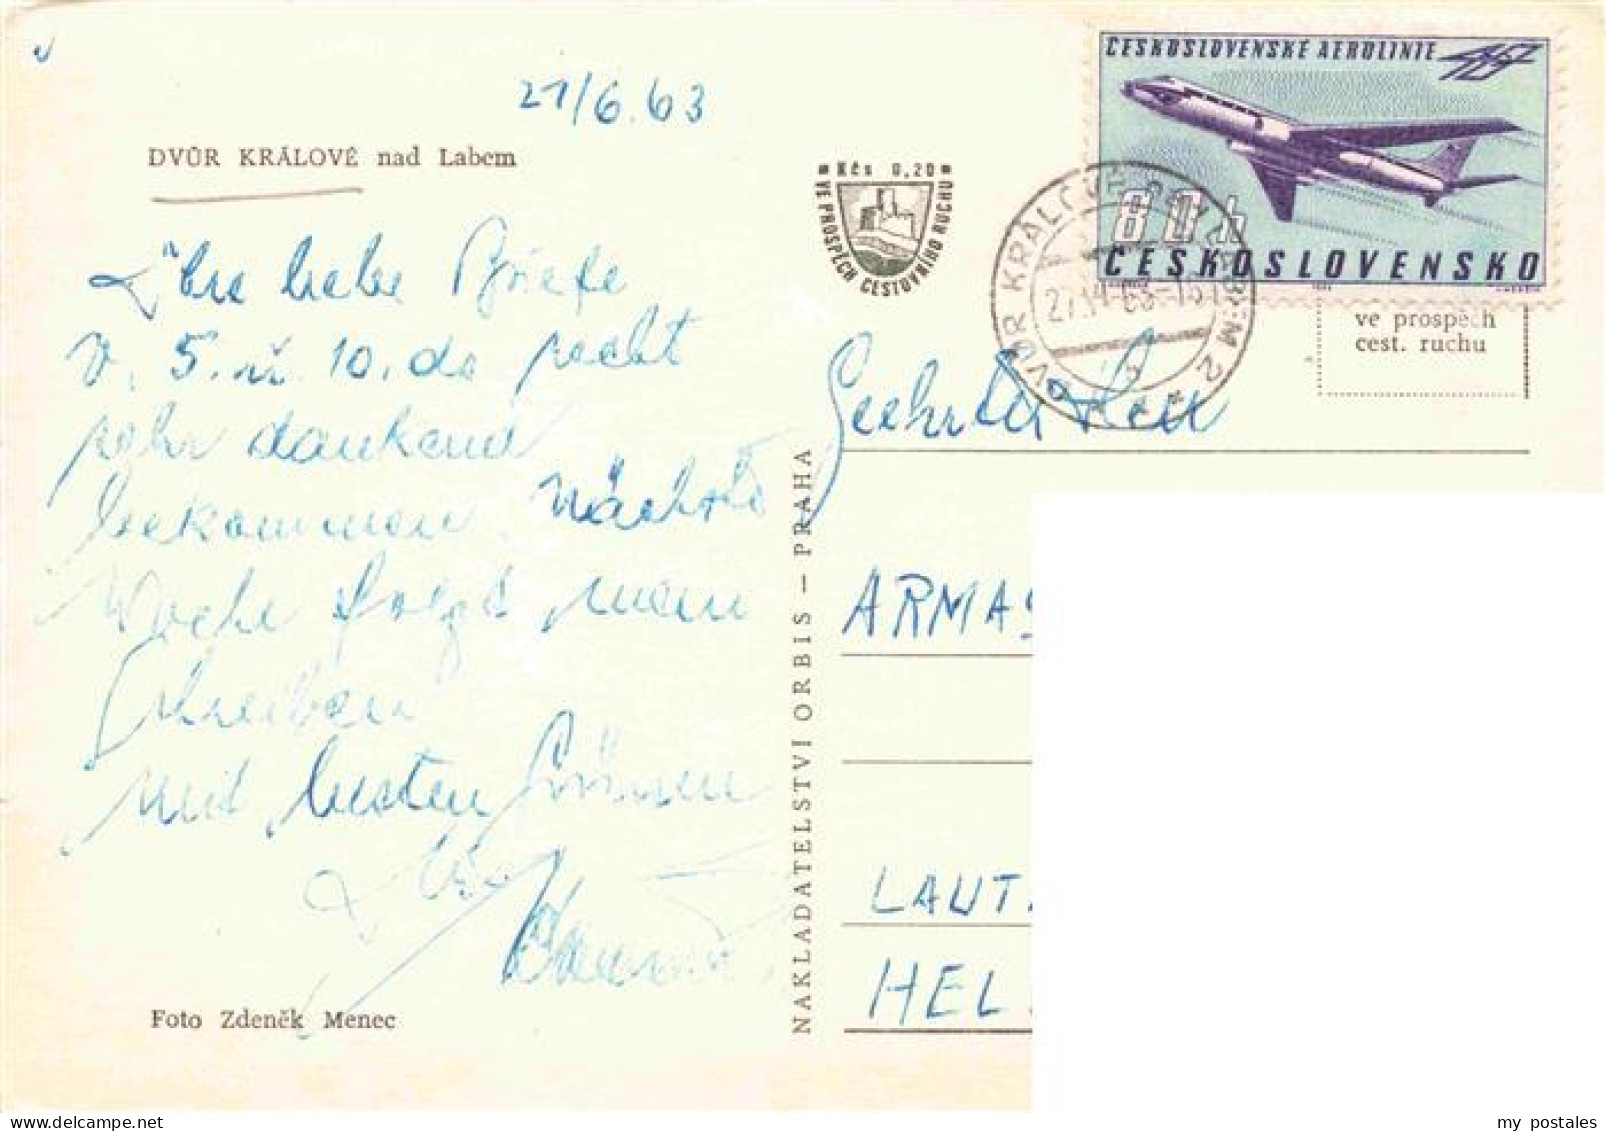 21/6.63
DVŮR KRÁLOVÉ nad Labem
Ihre liebe Briefe
v. 5. u. 10. ds recht
sehr dankend
bekommen Nächste
Woche folgt mein
Schreiben
mit besten Grüssen
Ihr
Kčs 0,20
VE PROSPĚCH CESTOVNÍHO RUCHU
ČESKOSLOVENSKÉ AEROLINIE
80 h
ČESKOSLOVENSKO
DVŮR KRÁLOVÉ N. LABEM 2
ve prospěch
cest. ruchu
Geehrter Herr
ARMAS
LAUT
HEL
NAKLADATELSTVÍ ORBIS — PRAHA
Foto Zdeněk Menec
my postales